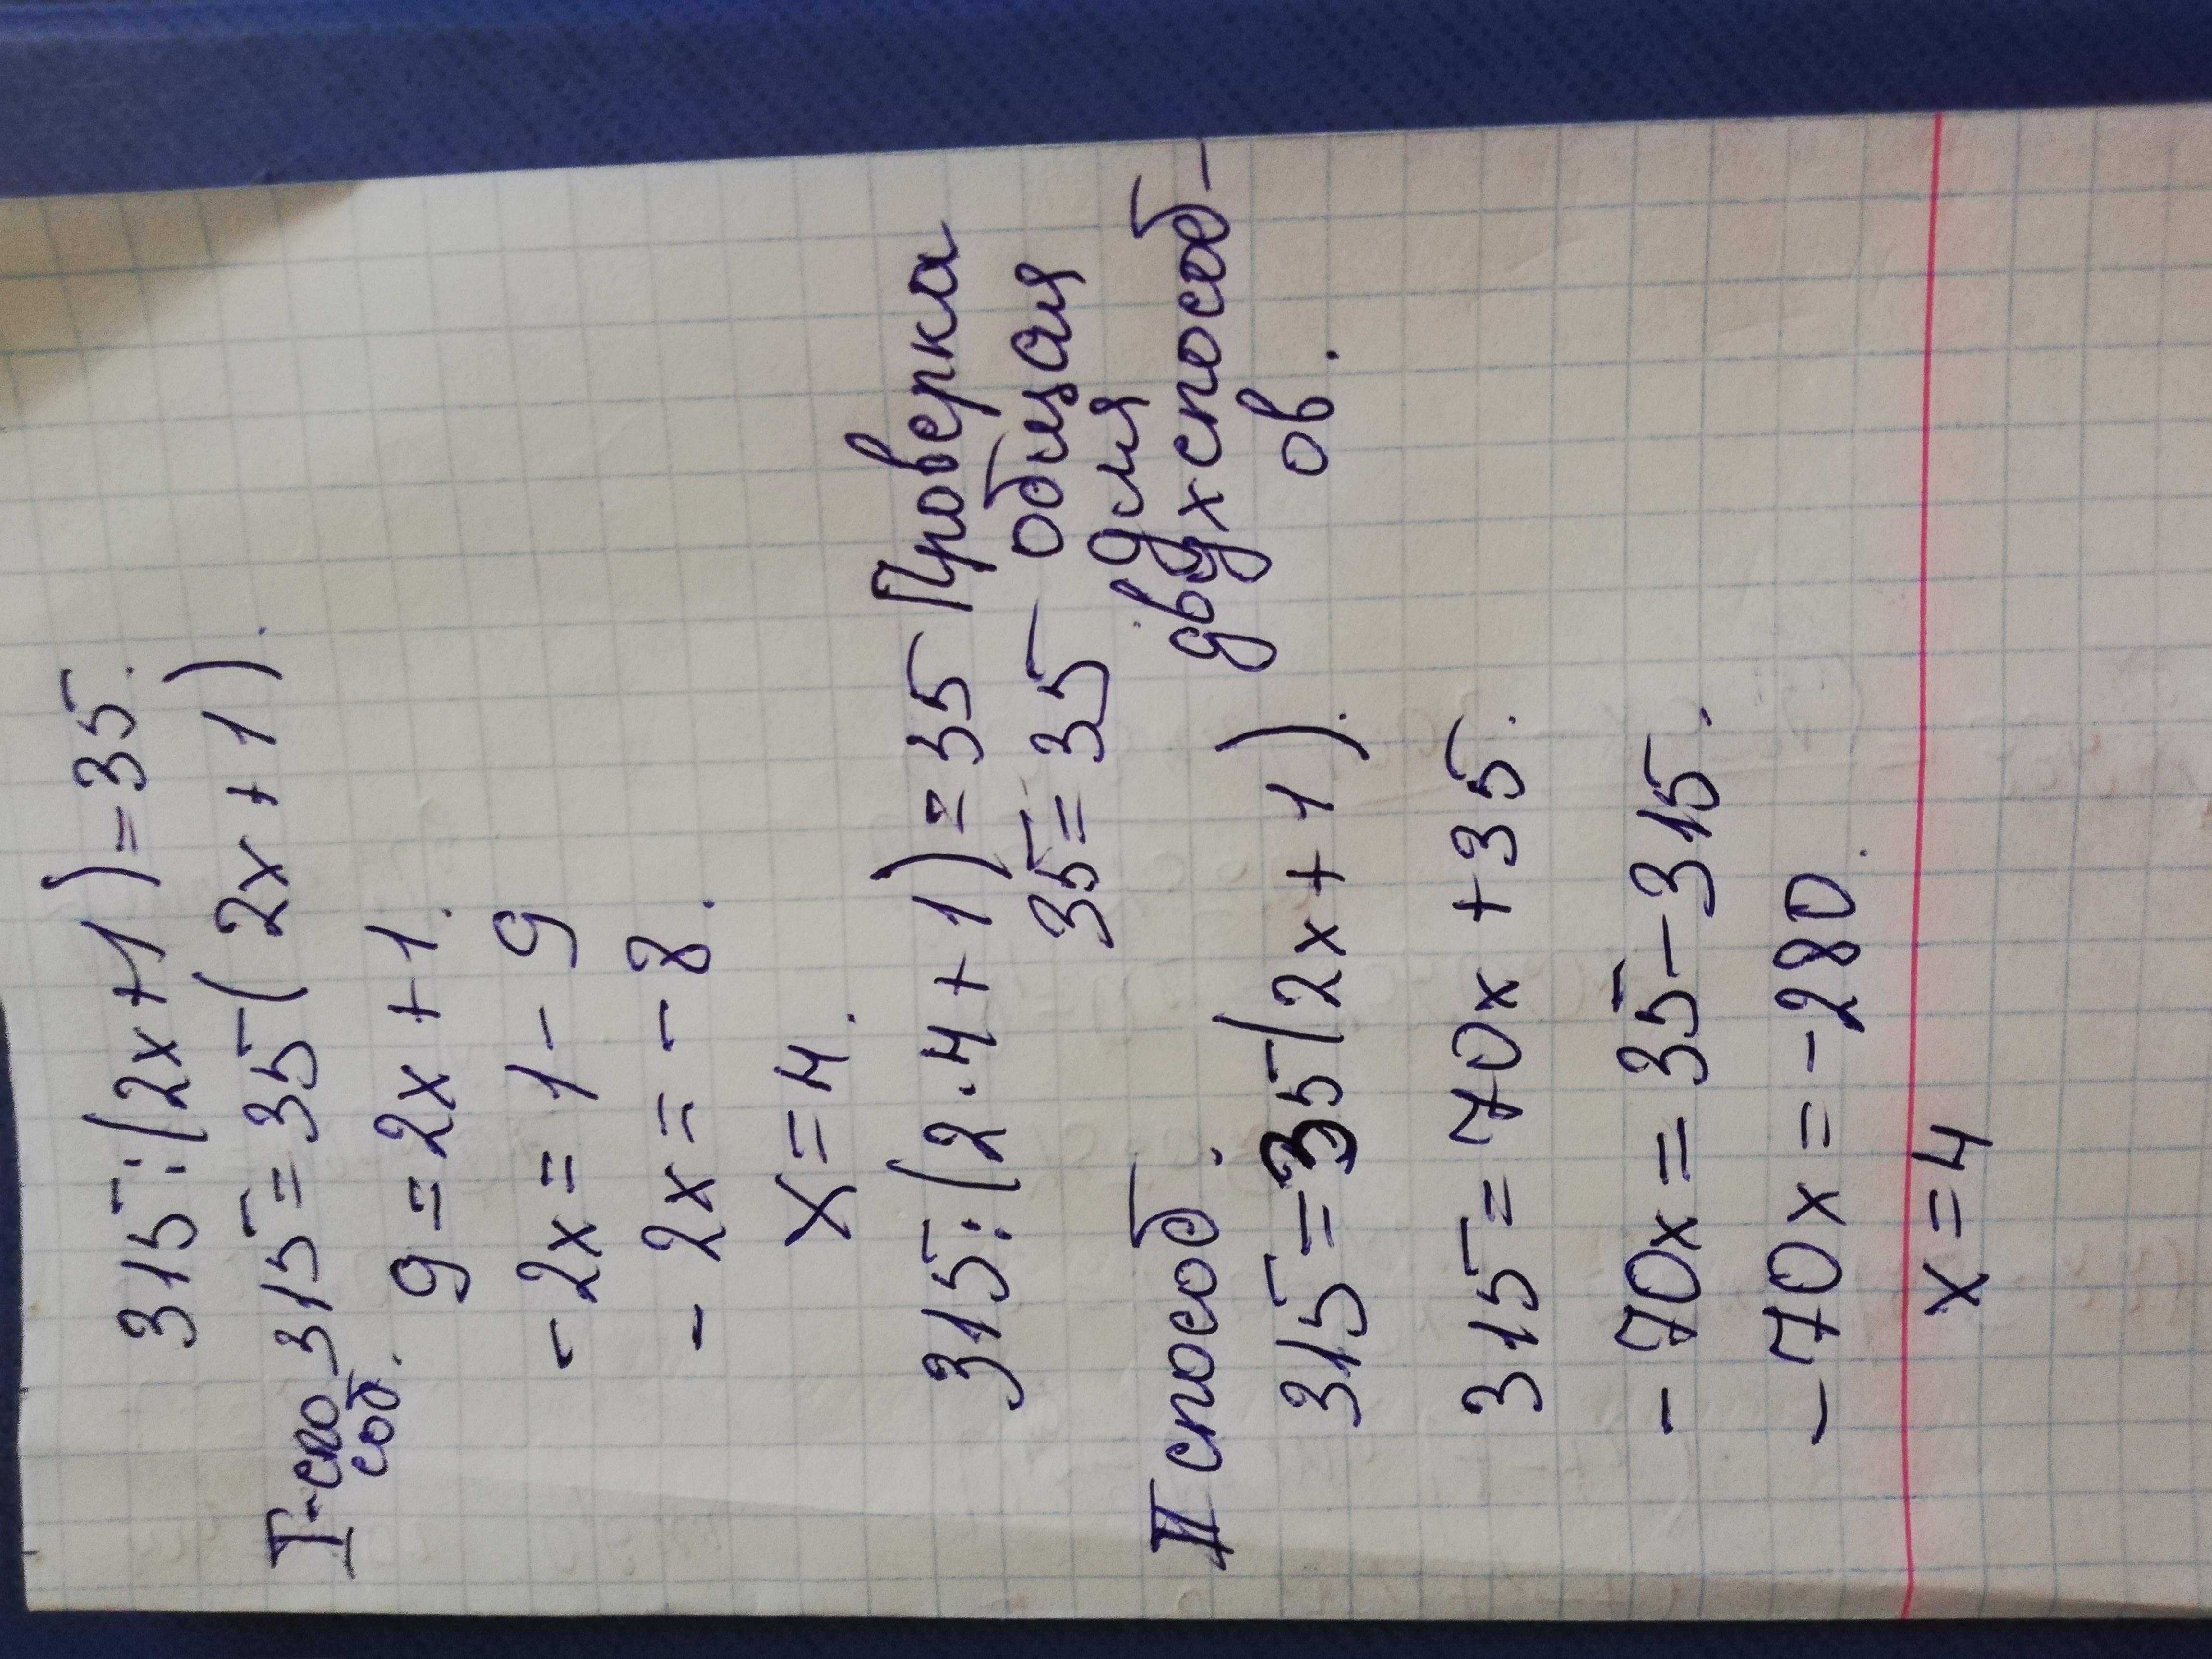 315:(2x+1)=35.
I-спо
соб.
315=35(2x+1).
9=2x+1.
-2x=1-9
-2x=-8.
x=4.
315:(2·4+1)=35 Проверка
35=35 общая
для
двух способ-
ов.
II способ.
315=35(2x+1).
315=70x+35.
-70x=35-315.
-70x=-280.
x=4